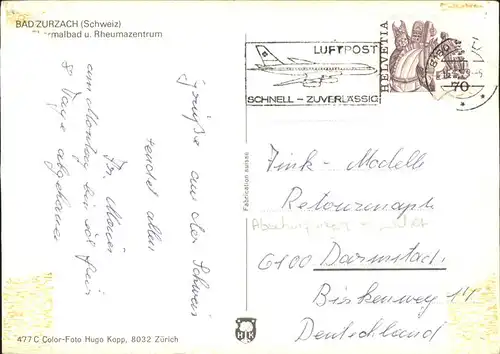 BAD ZURZACH (Schweiz)
Thermalbad u. Rheumazentrum
LUFTPOST
SCHNELL – ZUVERLÄSSIG
HELVETIA
70
Grüße aus der Schweiz
sendet allen
Fr. Maier
am Montag bin ich für
8 Tage abgefahren
Fabrication suisse
Fink – Modelle
Retourenannahme
6100 Darmstadt
Birkenweg 14
Deutschland
477 C Color-Foto Hugo Kopp, 8032 Zürich
HK